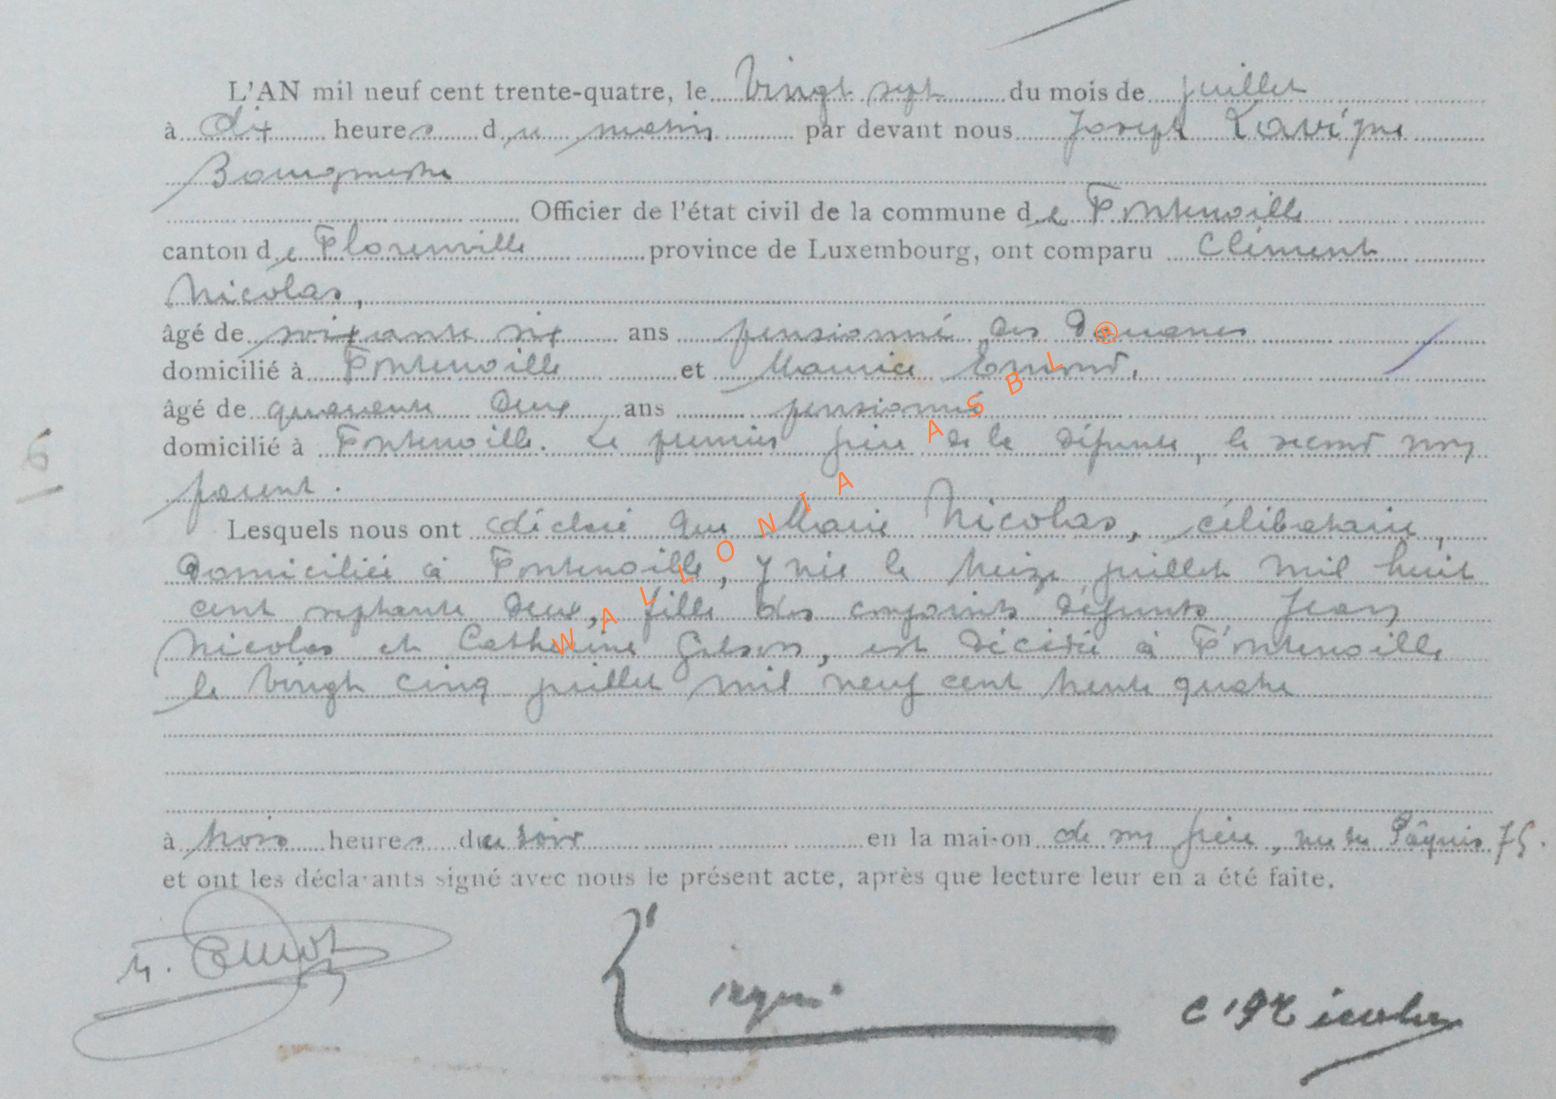 L'AN mil neuf cent trente-quatre, le vingt sept du mois de juillet
à dix heures du matin par devant nous Joseph Lavigne
Bourgmestre
Officier de l'état civil de la commune de Fontenoille
canton de Florenville province de Luxembourg, ont comparu Clément
Nicolas,
âgé de soixante six ans pensionné des Douanes
domicilié à Fontenoille et Maurice
âgé de quarante deux ans pensionné
domicilié à Fontenoille. Le premier frère de la défunte, le second non
parent.
Lesquels nous ont déclaré que Marie Nicolas, célibataire,
domiciliée à Fontenoille, y née le treize juillet mil huit
cent septante deux, fille des conjoints défunts Jean
Nicolas et Catherine, est décédée à Fontenoille
le vingt cinq juillet mil neuf cent trente quatre
à trois heures du soir en la maison de son frère, rue du Pâquis 75.
et ont les déclarants signé avec nous le présent acte, après que lecture leur en a été faite.
WALLONIA ASBL ®
6
Nicolas